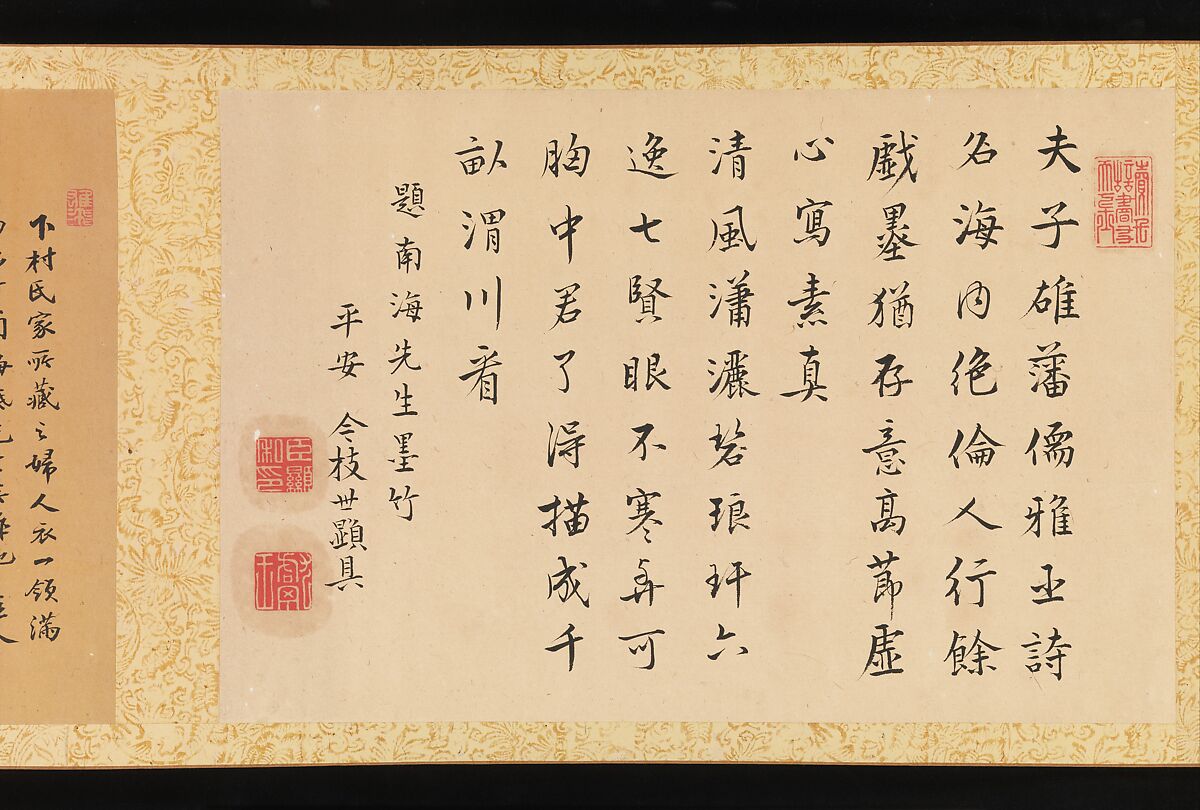 夫子雄藩儒雅臣詩
名海内絶倫人行餘
戯墨猶存意高節虚
心寫素真
清風瀟灑碧琅玕六
逸七賢眼不寒可
胸中君了得描成千
畝渭川看
題南海先生墨竹
平安 今枝世顕具
下村氏家所藏之婦人衣一領満